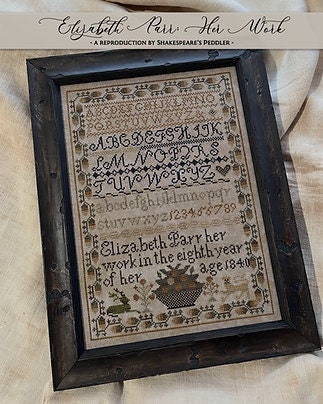 Elizabeth Parr: Her Work
- A REPRODUCTION BY SHAKESPEARE'S PEDDLER -
ABCDEFGHIJKLMNO
PQRSTUVWXYZ
ABCDEFGHIJK
LMNOPQRS
TUVWXYZ
abcdefghijklmnopqr
stuvwxyz123456789
Elizabeth Parr her
work in the eighth year
of her age 1840